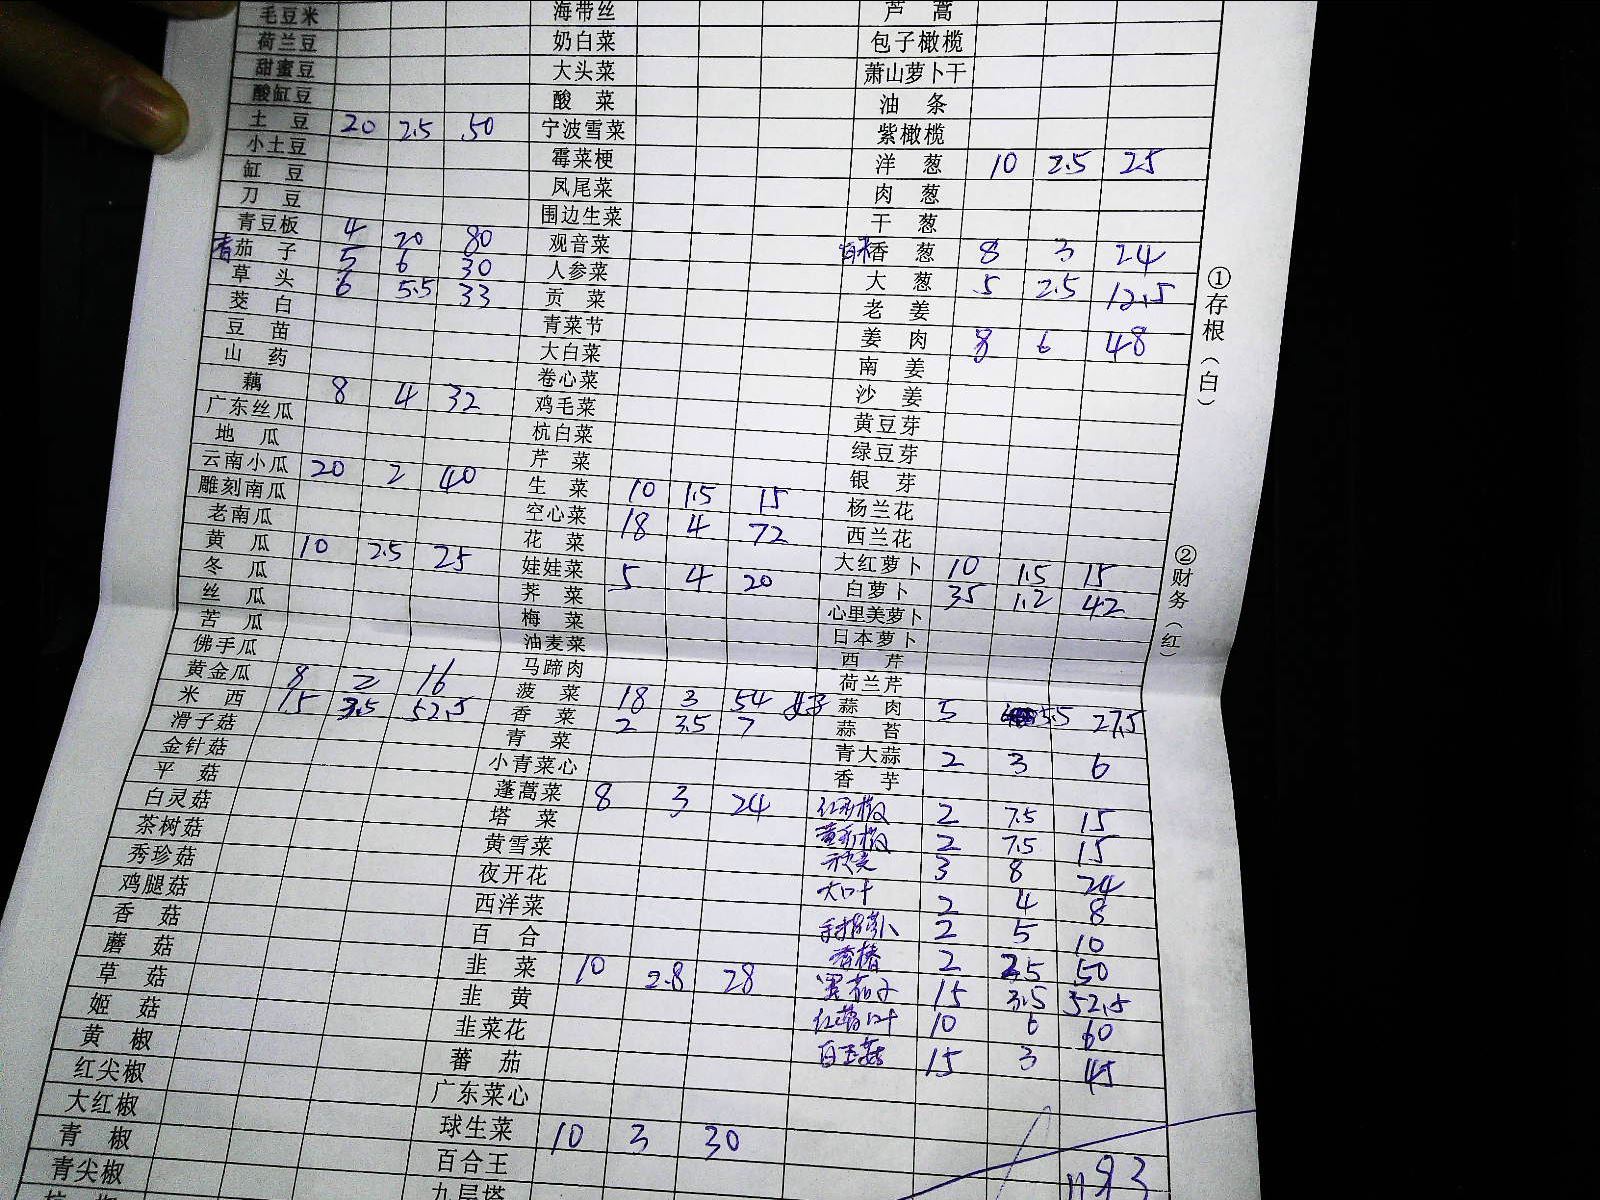 毛豆米
荷兰豆
甜蜜豆
酸缸豆
土豆 20 2.5 50
小土豆
缸豆
刀豆
青豆板 4 20 80
青茄子 5 6 30
草头 6 5.5 33
茭白
豆苗
山药
藕 8 4 32
广东丝瓜
地瓜
云南小瓜 20 2 40
雕刻南瓜
老南瓜
黄瓜 10 2.5 25
冬瓜
丝瓜
苦瓜
佛手瓜
黄金瓜 8 2 16
米西 15 3.5 52.5
滑子菇
金针菇
平菇
白灵菇
茶树菇
秀珍菇
鸡腿菇
香菇
蘑菇
草菇
姬菇
黄椒
红尖椒
大红椒
青椒
青尖椒
海带丝
奶白菜
大头菜
酸菜
宁波雪菜
霉菜梗
凤尾菜
围边生菜
观音菜
人参菜
贡菜
青菜节
大白菜
卷心菜
鸡毛菜
杭白菜
芹菜
生菜 10 1.5 15
空心菜 18 4 72
花菜
娃娃菜 5 4 20
荠菜
梅菜
油麦菜
马蹄肉
菠菜 18 3 54
香菜 2 3.5 7
青菜
小青菜心
蓬蒿菜 8 3 24
塔菜
黄雪菜
夜开花
西洋菜
百合
韭菜 10 2.8 28
韭黄
韭菜花
蕃茄
广东菜心
球生菜 10 3 30
百合王
九层塔
芦蒿
包子橄榄
萧山萝卜干
油条
紫橄榄
洋葱 10 2.5 25
肉葱
干葱
香葱 8 3 24
大葱 5 2.5 12.5
老姜
姜肉 8 6 48
南姜
沙姜
黄豆芽
绿豆芽
银芽
杨兰花
西兰花
大红萝卜 10 1.5 15
白萝卜 35 1.2 42
心里美萝卜
日本萝卜
西芹
荷兰芹
蒜肉 5 5.5 27.5
蒜苔
青大蒜 2 3 6
香芋
红彩椒 2 7.5 15
黄彩椒 2 7.5 15
3 8 24
大叶 2 4 8
手指萝卜 2 5 10
香椿 2 25 50
茄子 15 3.5 52.5
红薯叶 10 6 60
白玉菇 15 3 45
1193
①存根（白）
②财务（红）